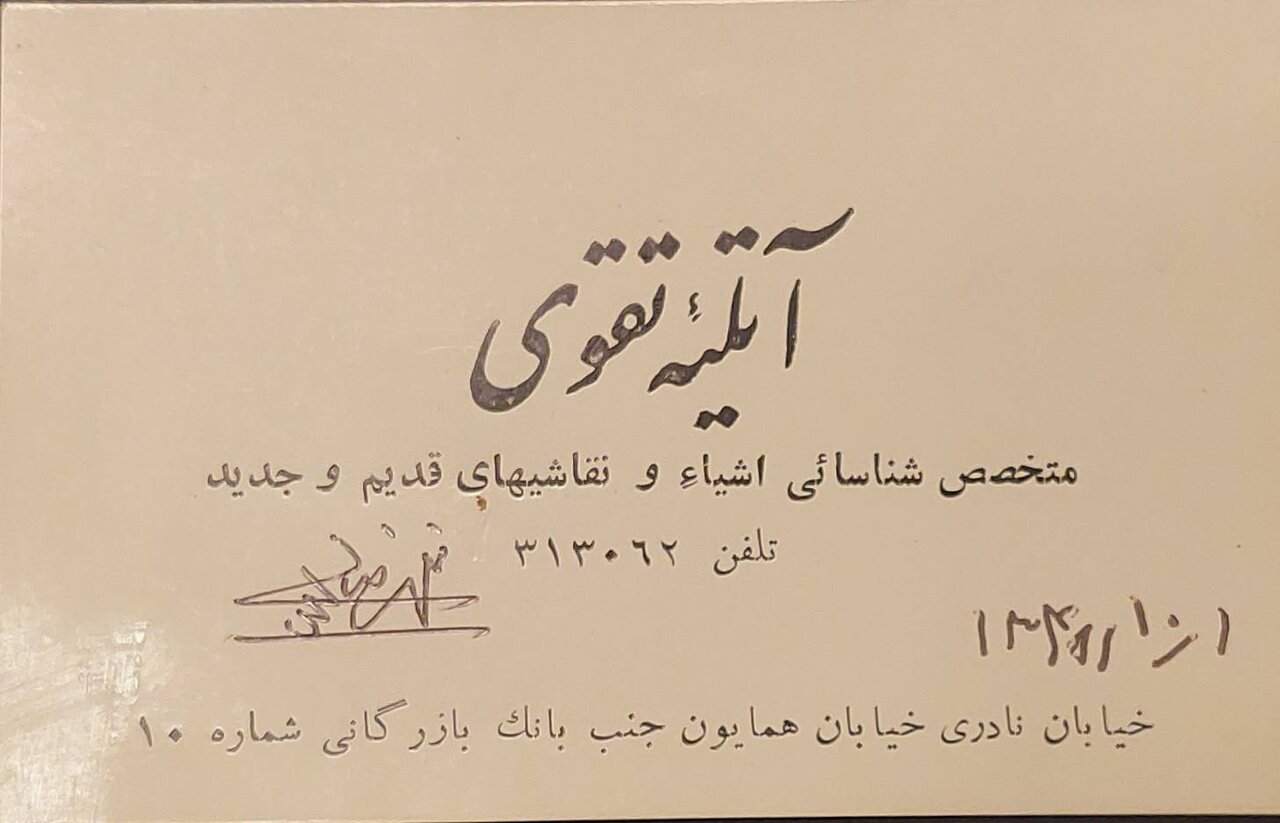 آتلیهٔ تقوی
متخصص شناسائی اشیاءِ و نقاشیهای قدیم و جدید
تلفن ۳۱۳۰۶۲
خیابان نادری خیابان همایون جنب بانك بازرگانی شماره ۱۰